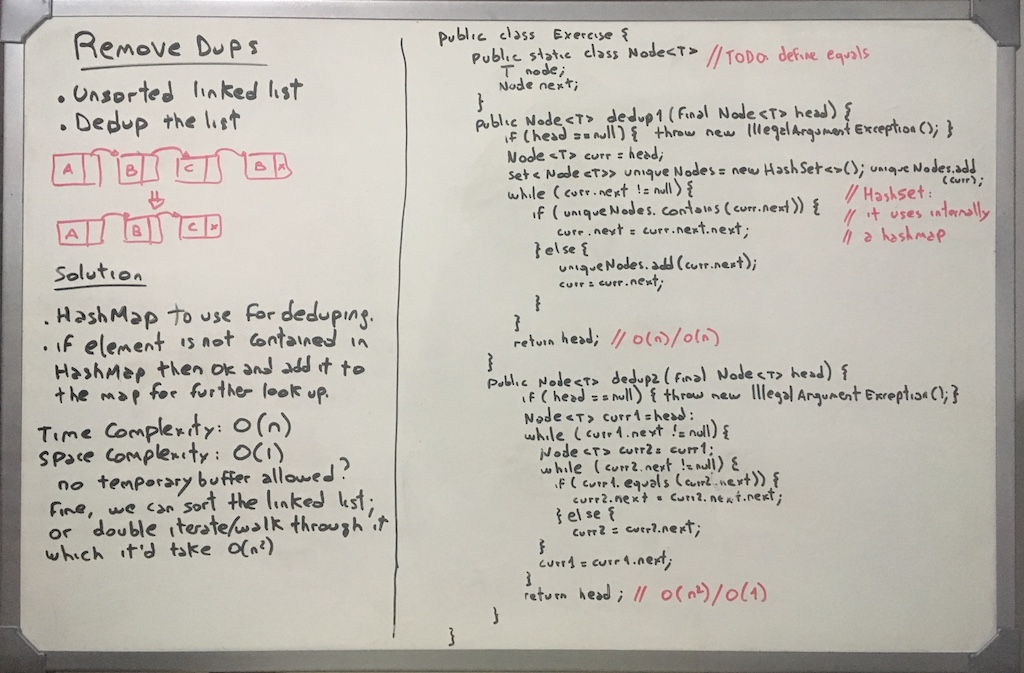 Remove Dups
• Unsorted linked list
• Dedup the list
A B C B x
A B C x
Solution
• HashMap to use for deduping.
• if element is not contained in
HashMap then ok and add it to
the map for further look up.
Time Complexity: O(n)
Space Complexity: O(1)
no temporary buffer allowed?
Fine, we can sort the linked list;
or double iterate/walk through it
which it'd take O(n²)
public class Exercise {
public static class Node<T> //TODO: define equals
T node;
Node next;
}
public Node<T> dedup1 (final Node<T> head) {
if (head == null) { throw new IllegalArgumentException(); }
Node<T> curr = head;
Set<Node<T>> uniqueNodes = new HashSet<>(); uniqueNodes.add
(curr);
while (curr.next != null) { // HashSet:
if (uniqueNodes.contains(curr.next)) { // it uses internally
curr.next = curr.next.next; // a hashmap
} else {
uniqueNodes.add(curr.next);
curr = curr.next;
}
}
return head; // O(n)/O(n)
}
public Node<T> dedup2 (final Node<T> head) {
if (head == null) { throw new IllegalArgumentException(); }
Node<T> curr1 = head;
while (curr1.next != null) {
Node<T> curr2 = curr1;
while (curr2.next != null) {
if (curr1.equals(curr2.next)) {
curr2.next = curr2.next.next;
} else {
curr2 = curr2.next;
}
curr1 = curr1.next;
}
return head; // O(n²)/O(1)
}
}